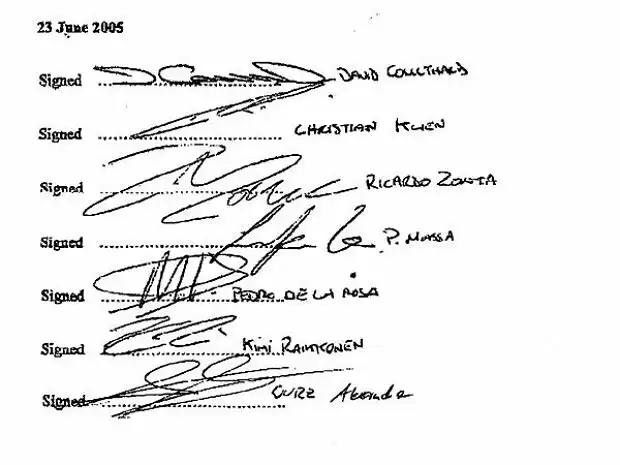 23 June 2005
Signed D Coulthard DAVID COULTHARD
Signed CHRISTIAN KLIEN
Signed RICARDO ZONTA
Signed P. MASSA
Signed PEDRO DE LA ROSA
Signed KIMI RAIKKONEN
Signed